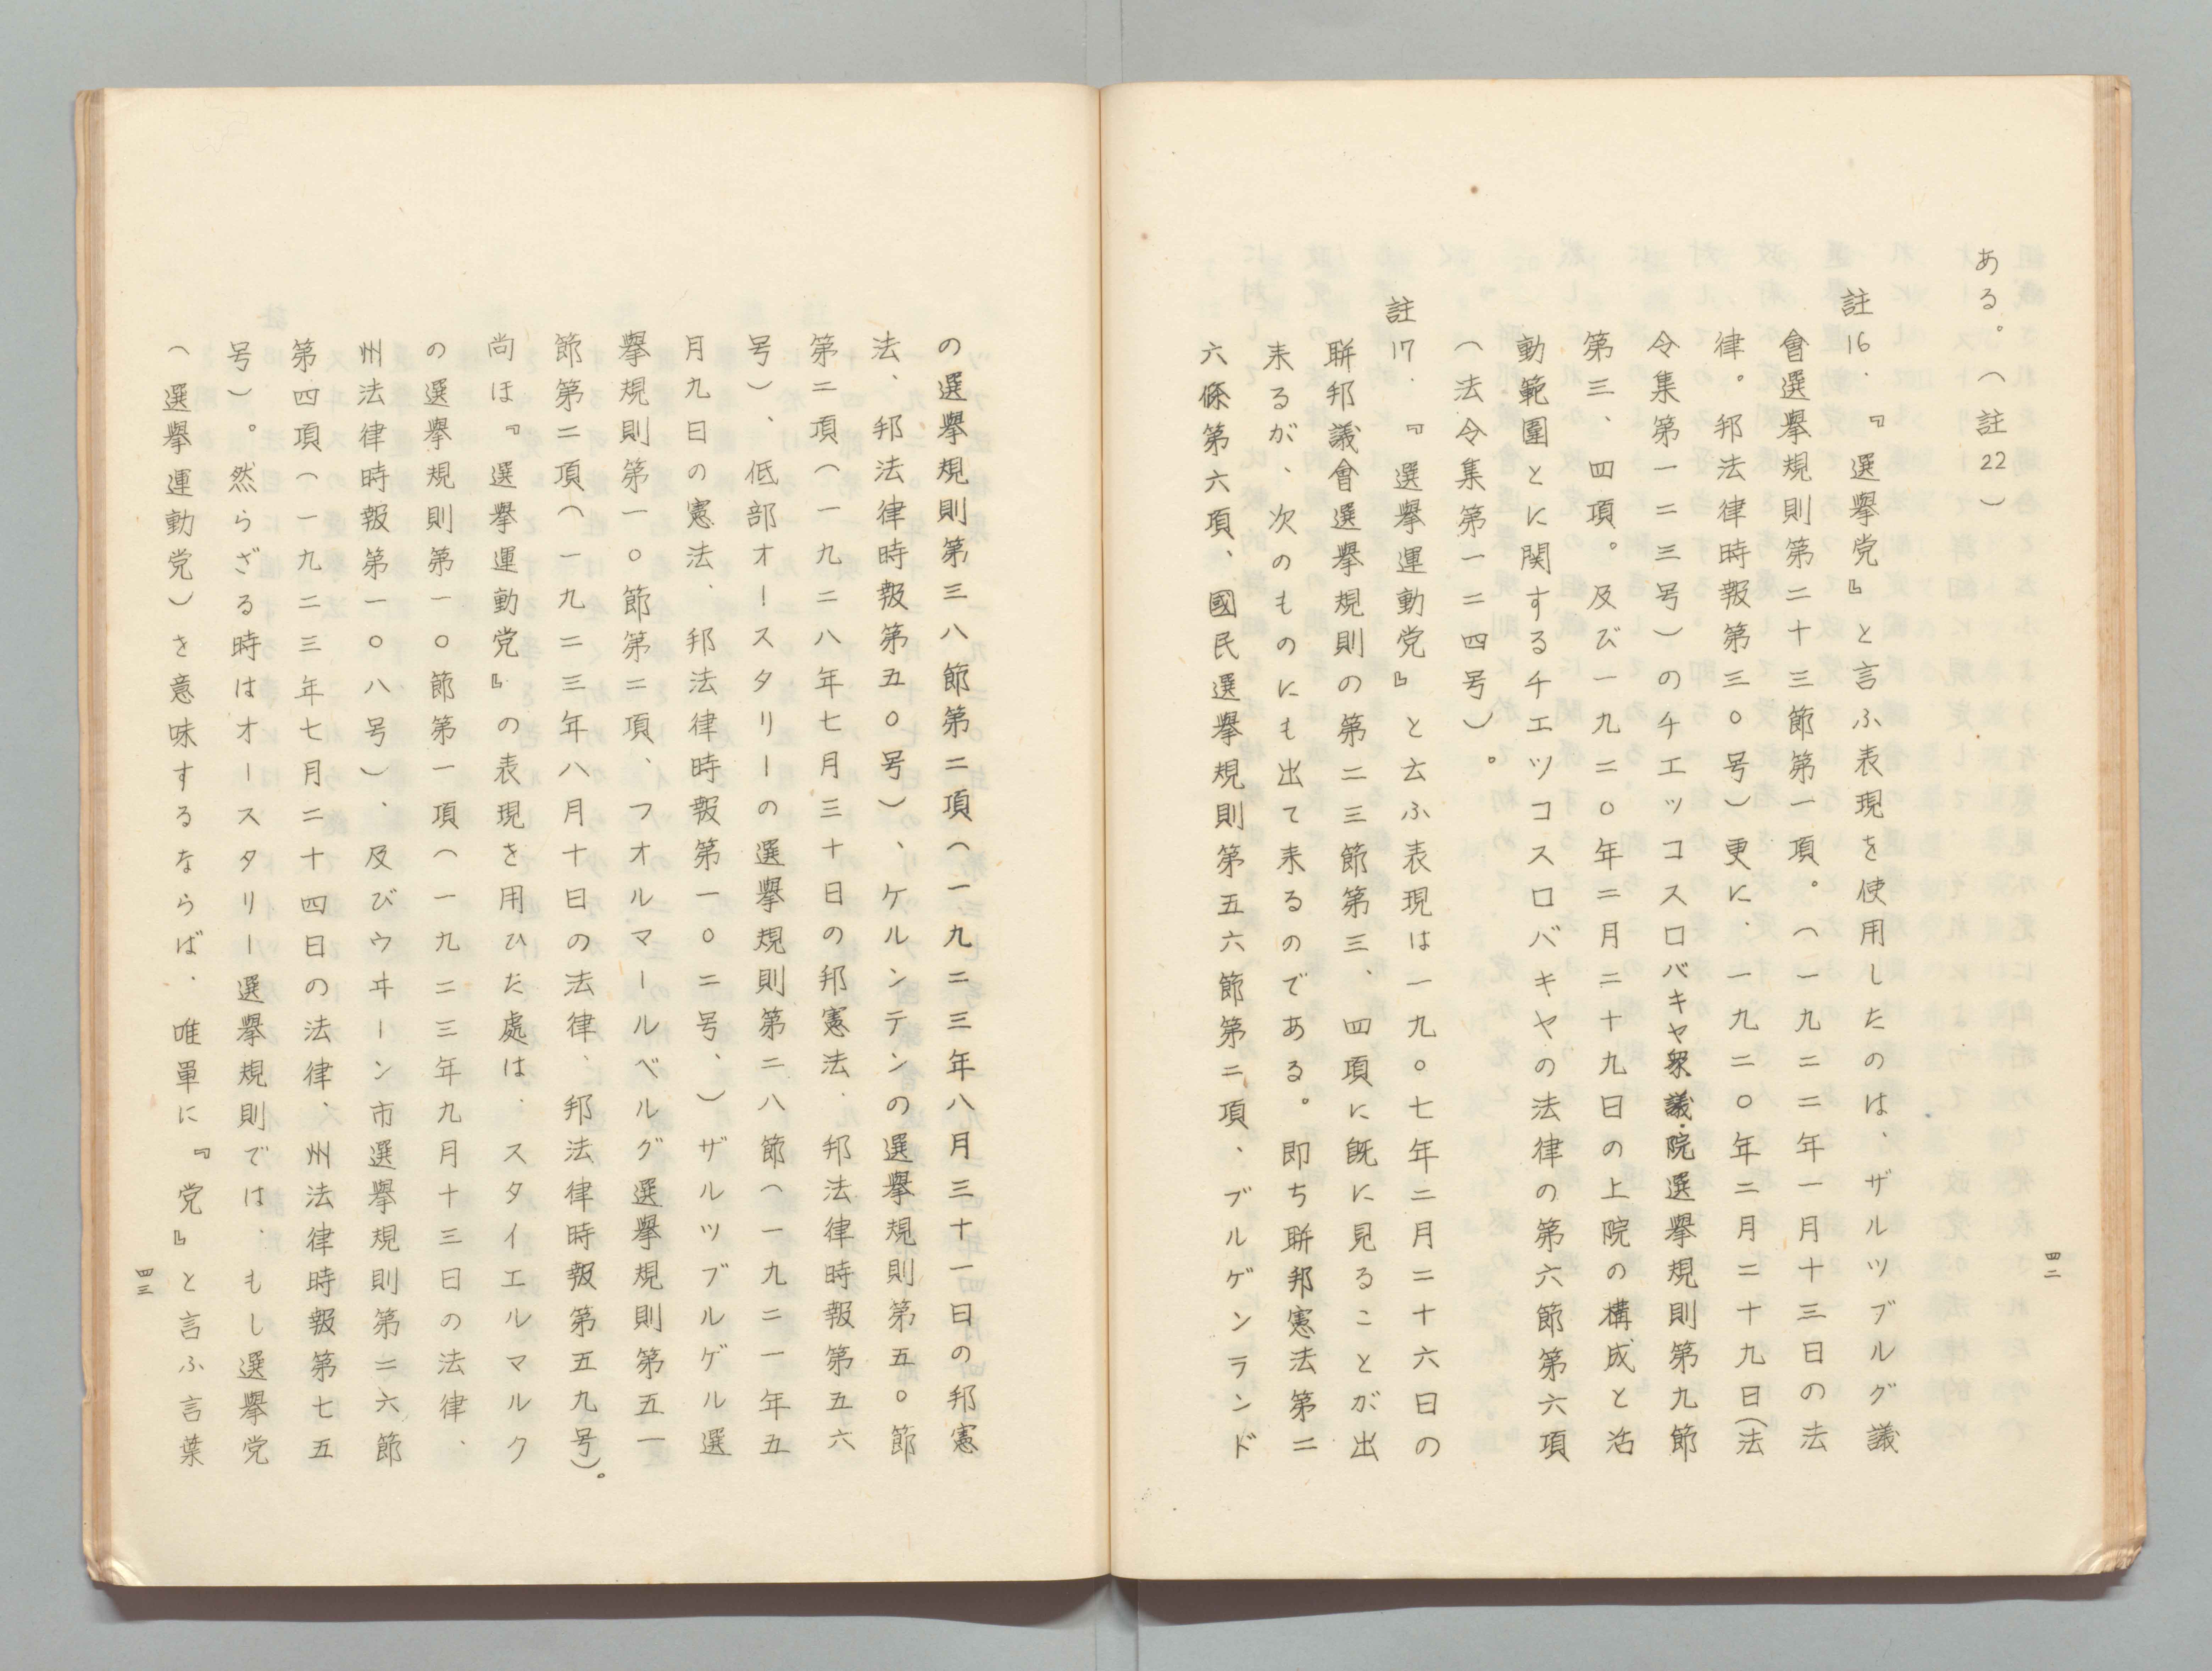 ある。（註22）
註16. 『選擧党』と言ふ表現を使用したのは、ザルツブルグ議
會選擧規則第二十三節第一項。（一九二二年一月十三日の法
律。邦法律時報第三〇号）更に、一九二〇年二月二十九日（法
令集第一二三号）のチエッコスロバキヤ衆議院選擧規則第九節
第三、四項。及び一九二〇年二月二十九日の上院の構成と活
動範圍とに関するチエツコスロバキヤの法律の第六節第六項
（法令集第一二四号）。
註17. 『選擧運動党』と云ふ表現は一九〇七年二月二十六日の
聯邦議會選擧規則の第二三節第三、四項に既に見ることが出
来るが、次のものにも出て来るのである。即ち聯邦憲法第二
六條第六項、國民選擧規則第五六節第二項、ブルゲンランド
四二
の選擧規則第三八節第二項（一九二三年八月三十一日の邦憲
法、邦法律時報第五〇号）、ケルンテンの選擧規則第五〇節
第二項（一九二八年七月三十日の邦憲法、邦法律時報第五六
号）、低部オースタリーの選擧規則第二八節（一九二一年五
月九日の憲法、邦法律時報第一〇二号、）ザルツブルゲル選
擧規則第一〇節第二項、フオルマールベルグ選擧規則第五一
節第二項（一九二三年八月十日の法律、邦法律時報第五九号）。
尚ほ『選擧運動党』の表現を用ひた處は、スタイエルマルク
の選擧規則第一〇節第一項（一九二三年九月十三日の法律、
州法律時報第一〇八号）、及びウヰーン市選擧規則第二六節
第四項（一九二三年七月二十四日の法律、州法律時報第七五
号）。然らざる時はオースタリー選擧規則では、もし選擧党
（選擧運動党）を意味するならば、唯單に『党』と言ふ言葉
四三